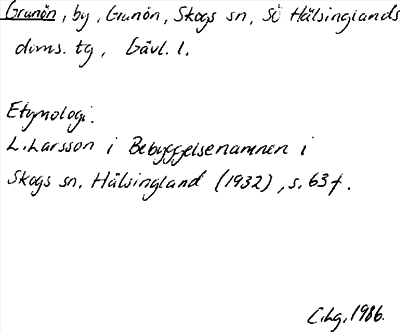 Grunön, by, Grunön, Skogs sn, Sö Hälsinglands
doms. tg, Gävl. l.
Etymologi.
L. Larsson i Bebyggelsenamnen i
Skogs sn. Hälsingland (1932), s. 63f.
C.Lg. 1986.